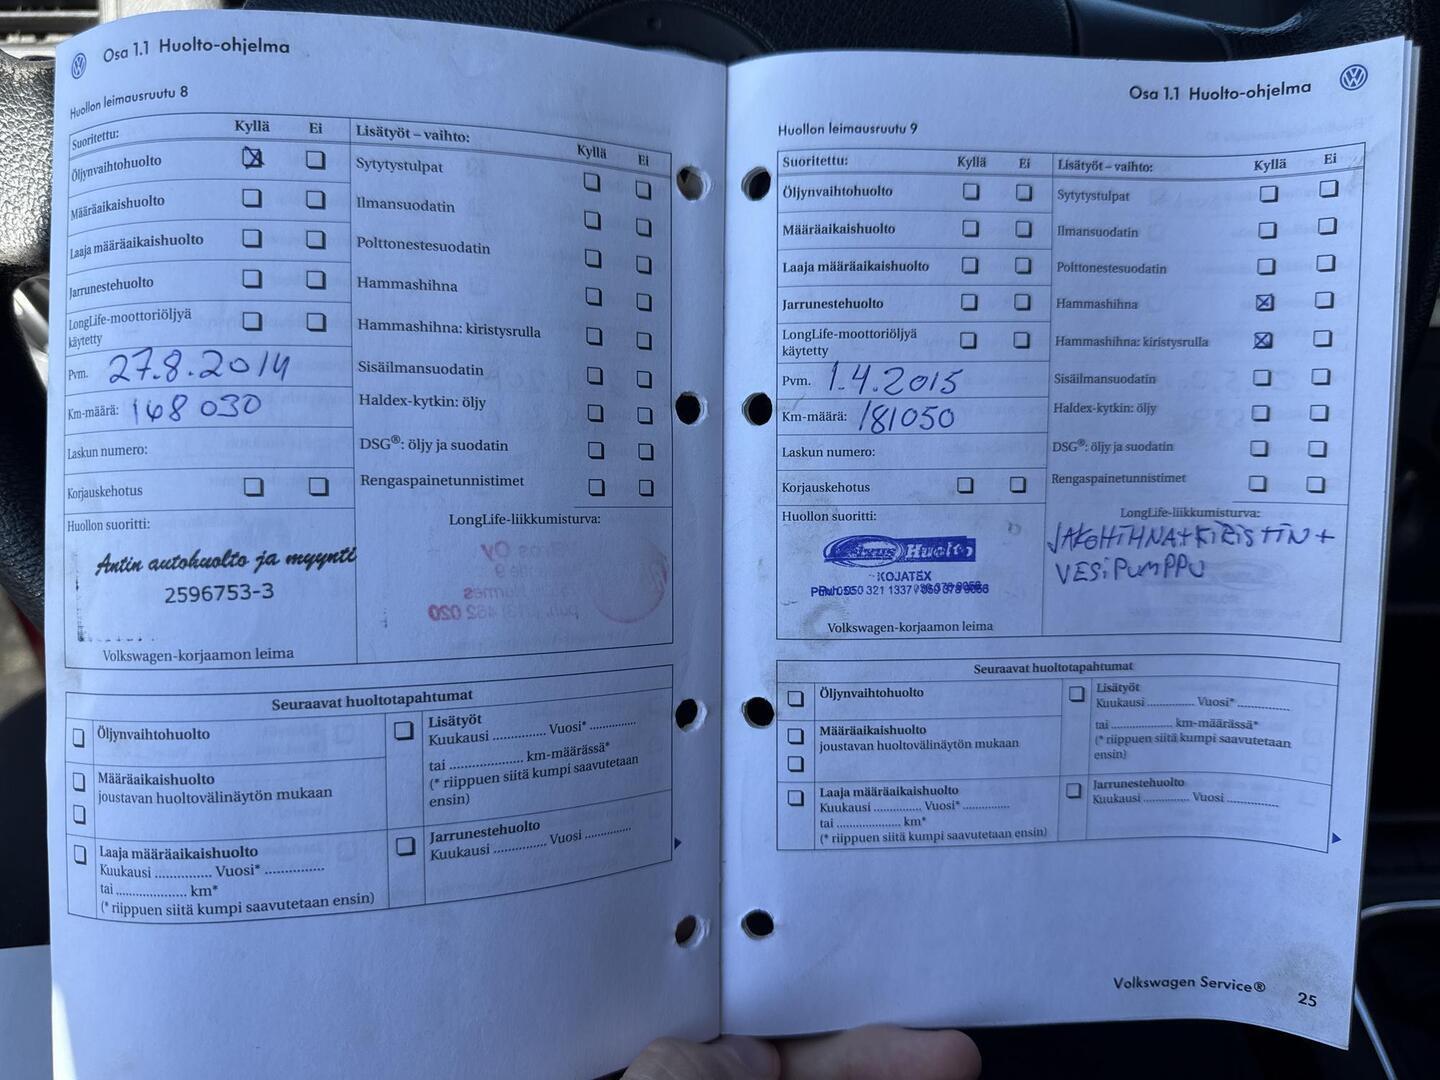 Osa 1.1 Huolto-ohjelma
Huollon leimausruutu 8
Suoritettu: Kyllä Ei
Öljynvaihtohuolto
Määräaikaishuolto
Laaja määräaikaishuolto
Jarrunestehuolto
LongLife-moottoriöljyä
käytetty
Pvm. 27.8.2014
Km-määrä: 148 030
Laskun numero:
Korjauskehotus
Huollon suoritti:
Antin autohuolto ja myynti
2596753-3
Volkswagen-korjaamon leima
Lisätyöt – vaihto: Kyllä Ei
Sytytystulpat
Ilmansuodatin
Polttonestesuodatin
Hammashihna
Hammashihna: kiristysrulla
Sisäilmansuodatin
Haldex-kytkin: öljy
DSG®: öljy ja suodatin
Rengaspainetunnistimet
LongLife-liikkumisturva:
Seuraavat huoltotapahtumat
Öljynvaihtohuolto
Määräaikaishuolto
joustavan huoltovälinäytön mukaan
Laaja määräaikaishuolto
Kuukausi .............. Vuosi* ..............
tai .................. km*
(* riippuen siitä kumpi saavutetaan ensin)
Lisätyöt
Kuukausi .............. Vuosi* ............
tai ................... km-määrässä*
(* riippuen siitä kumpi saavutetaan
ensin)
Jarrunestehuolto
Kuukausi .............. Vuosi ..............
Osa 1.1 Huolto-ohjelma
Huollon leimausruutu 9
Suoritettu: Kyllä Ei
Öljynvaihtohuolto
Määräaikaishuolto
Laaja määräaikaishuolto
Jarrunestehuolto
LongLife-moottoriöljyä
käytetty
Pvm. 1.4.2015
Km-määrä: 181050
Laskun numero:
Korjauskehotus
Huollon suoritti:
Huolto
KOJATEX
050 321 1337
Volkswagen-korjaamon leima
Lisätyöt – vaihto: Kyllä Ei
Sytytystulpat
Ilmansuodatin
Polttonestesuodatin
Hammashihna
Hammashihna: kiristysrulla
Sisäilmansuodatin
Haldex-kytkin: öljy
DSG®: öljy ja suodatin
Rengaspainetunnistimet
LongLife-liikkumisturva:
JAKOHIHNA+KIRISTIN+
VESIPUMPPU
Seuraavat huoltotapahtumat
Öljynvaihtohuolto
Määräaikaishuolto
joustavan huoltovälinäytön mukaan
Laaja määräaikaishuolto
Kuukausi ............ Vuosi* ............
tai ................ km*
(* riippuen siitä kumpi saavutetaan ensin)
Lisätyöt
Kuukausi ............ Vuosi* .............
tai ................ km-määrässä*
(* riippuen siitä kumpi saavutetaan
ensin)
Jarrunestehuolto
Kuukausi ............ Vuosi .............
Volkswagen Service®
25